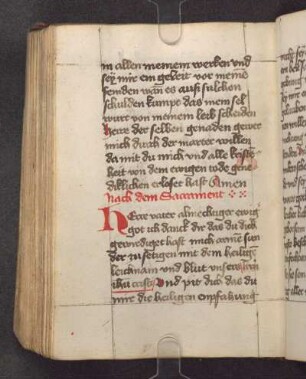 in allen meinem wercken vnd
sey mir ein geleit vor meine
feinden wan es auß sulchen
schulden kompt das mein sel
wurt von meinem leib scheiden
herre der selben genaden gewer
mich durch der marter willen
da mit du mich vnd alle kriste
heit von dem ewigen tode gene
diklichen erloset hast Amen
Nach dem Sacrament
Herre vater almechtiger ewig
got ich danck dir das du dich
gewirdiget hast mich arme sun
der zu setigen mit dem heilige
leichnam vnd blut vnsers heren
ihu cristi Vnd pit dich das du
mir die heiligen empfahung